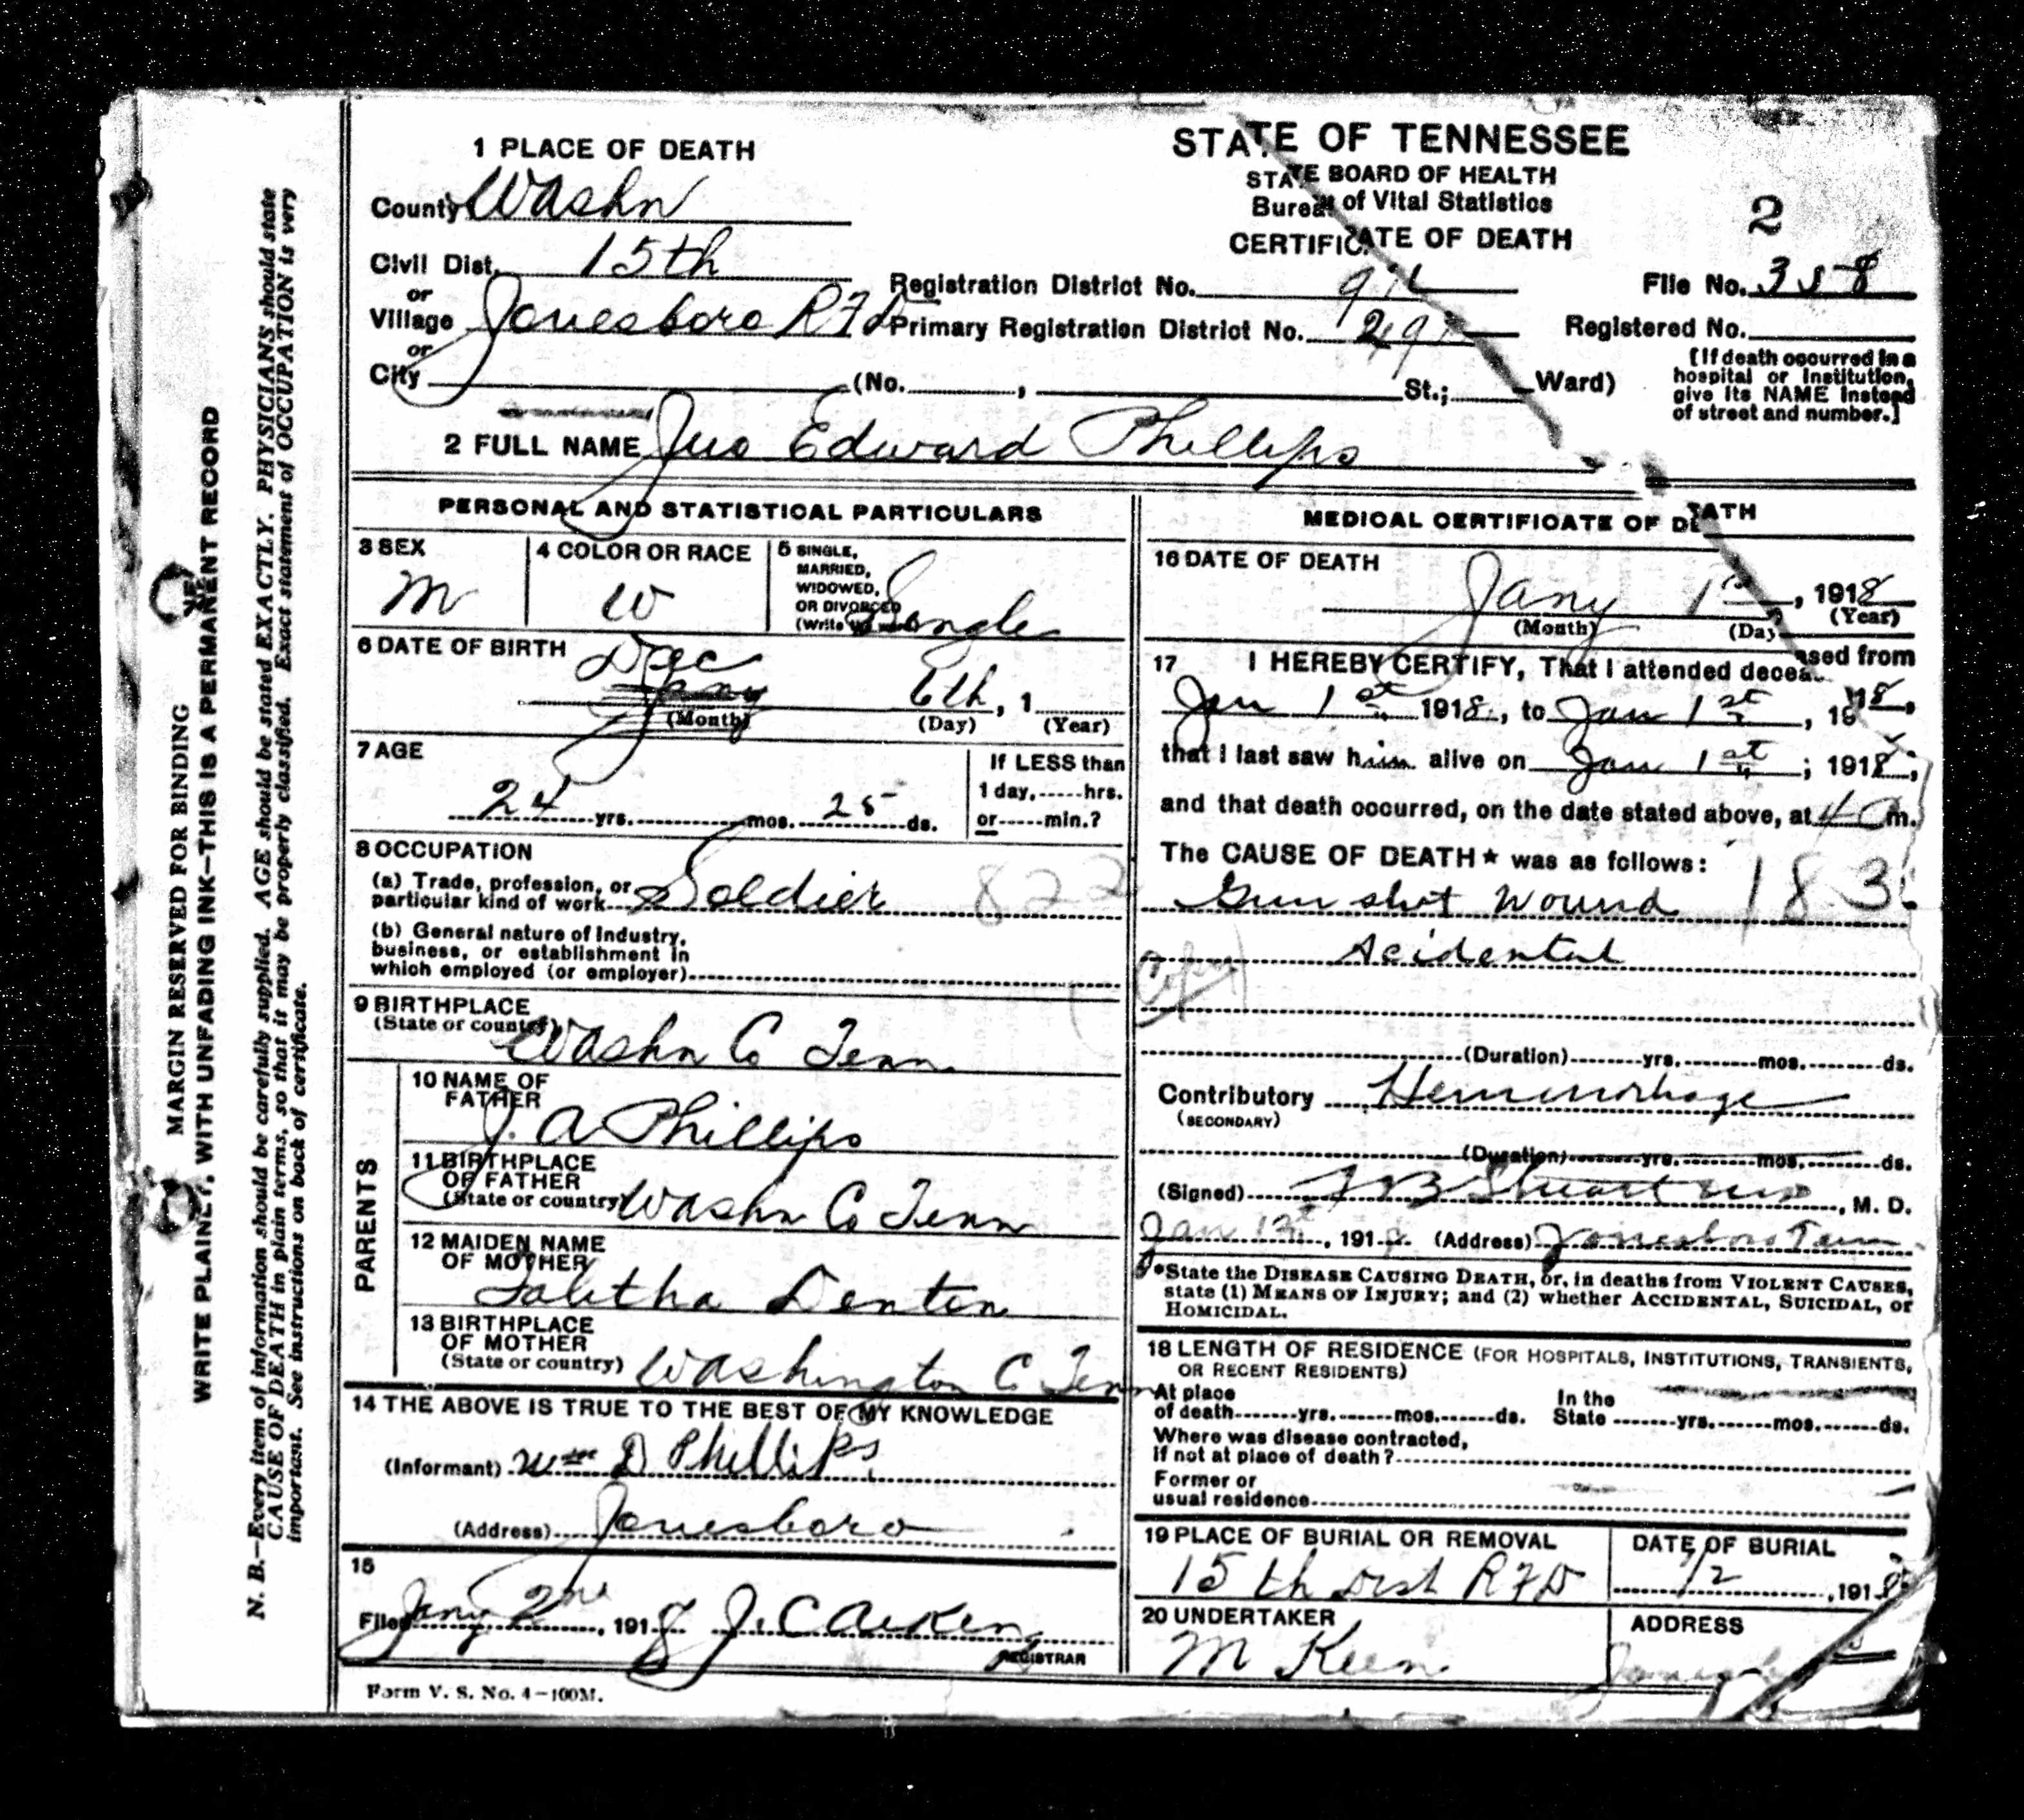 1 PLACE OF DEATH
County Washn
Civil Dist. 15th
or
Village Jonesboro RFD
or
City (No. , St.; Ward)
STATE OF TENNESSEE
STATE BOARD OF HEALTH
Bureau of Vital Statistics
CERTIFICATE OF DEATH
2
Registration District No.
File No. 358
Primary Registration District No.
Registered No.
[If death occurred in a
hospital or institution,
give its NAME instead
of street and number.]
2 FULL NAME Jno Edward Phillips
PERSONAL AND STATISTICAL PARTICULARS
3 SEX
M
4 COLOR OR RACE
W
5 SINGLE,
MARRIED,
WIDOWED,
OR DIVORCED
(Write the word)
Single
6 DATE OF BIRTH
Dec 6th, 1
(Month) (Day) (Year)
7 AGE
24 yrs. mos. 25 ds.
If LESS than
1 day, hrs.
or min.?
8 OCCUPATION
(a) Trade, profession, or
particular kind of work Soldier 822
(b) General nature of Industry,
business, or establishment in
which employed (or employer)
9 BIRTHPLACE
(State or country)
Washn Co Tenn
PARENTS
10 NAME OF
FATHER
J. A Phillips
11 BIRTHPLACE
OF FATHER
(State or country) Washn Co Tenn
12 MAIDEN NAME
OF MOTHER
Tabitha Denton
13 BIRTHPLACE
OF MOTHER
(State or country) Washington C Tenn
14 THE ABOVE IS TRUE TO THE BEST OF MY KNOWLEDGE
(Informant) Wm D Phillips
(Address) Jonesboro
15
Filed Jany 2nd, 1918 J. C Aiken
REGISTRAR
Form V. S. No. 4—100M.
MEDICAL CERTIFICATE OF DEATH
16 DATE OF DEATH
Jany 1st, 1918
(Month) (Day) (Year)
17 I HEREBY CERTIFY, That I attended deceased from
Jan 1st 1918, to Jan 1st, 1918,
that I last saw him alive on Jan 1st; 1918;
and that death occurred, on the date stated above, at m.
The CAUSE OF DEATH* was as follows:
Gun shot Wound 183
Acidental
(Duration) yrs. mos. ds.
Contributory Hemmorhage
(SECONDARY)
(Duration) yrs. mos. ds.
(Signed) Stuart , M. D.
Jan , 191 (Address) Jonesboro Tenn
*State the DISEASE CAUSING DEATH, or, in deaths from VIOLENT CAUSES,
state (1) MEANS OF INJURY; and (2) whether ACCIDENTAL, SUICIDAL, or
HOMICIDAL.
18 LENGTH OF RESIDENCE (FOR HOSPITALS, INSTITUTIONS, TRANSIENTS,
OR RECENT RESIDENTS)
At place
of death yrs. mos. ds.
In the
State yrs. mos. ds.
Where was disease contracted,
if not at place of death?
Former or
usual residence
19 PLACE OF BURIAL OR REMOVAL
15th Dist RFD
DATE OF BURIAL
1/2, 1918
20 UNDERTAKER
ADDRESS
MARGIN RESERVED FOR BINDING
WRITE PLAINLY, WITH UNFADING INK—THIS IS A PERMANENT RECORD
N. B.—Every item of information should be carefully supplied. AGE should be stated EXACTLY. PHYSICIANS should state
CAUSE OF DEATH in plain terms, so that it may be properly classified. Exact statement of OCCUPATION is very
important. See instructions on back of certificate.